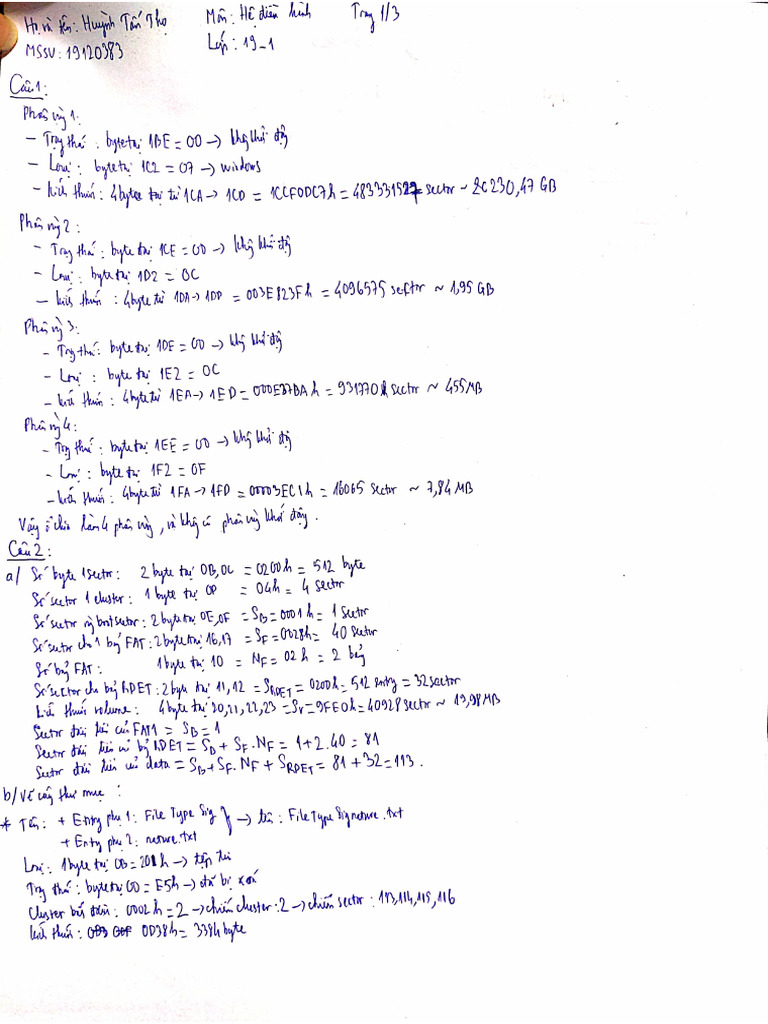 Họ và tên: Huỳnh Tấn Thọ Môn: Hệ điều hành Trang 1/3
MSSV: 19120383 Lớp: 19_1
Câu 1:
Phân vùng 1:
- Trạng thái: byte tại 1BE = 00 -> không khởi động
- Loại: byte tại 1C2 = 07 -> windows
- Kích thước: 4 byte tại từ 1CA -> 1CD = 1CCF0DC7h = 483331527 sector ~ 230,47 GB
Phân vùng 2:
- Trạng thái: byte tại 1CE = 00 -> không khởi động
- Loại: byte tại 1D2 = 0C
- Kích thước: 4 byte từ 1DA -> 1DD = 003E823Fh = 4096575 sector ~ 1,95 GB
Phân vùng 3:
- Trạng thái: byte tại 1DE = 00 -> không khởi động
- Loại: byte tại 1E2 = 0C
- Kích thước: 4 byte từ 1EA -> 1ED = 000E37BAh = 931770 sector ~ 455 MB
Phân vùng 4:
- Trạng thái: byte tại 1EE = 00 -> không khởi động
- Loại: byte tại 1F2 = 0F
- Kích thước: 4 byte từ 1FA -> 1FD = 00003EC1h = 16065 sector ~ 7,84 MB
Vậy ổ chia làm 4 phân vùng, và không có phân vùng khởi động.
Câu 2:
a/ Số byte 1 sector: 2 byte tại 0B,0C = 0200h = 512 byte
Số sector 1 cluster: 1 byte tại 0D = 04h = 4 sector
Số sector vùng bootsector: 2 byte tại 0E,0F = SB = 0001h = 1 sector
Số sector cho 1 bảng FAT: 2 byte tại 16,17 = SF = 0028h = 40 sector
Số bảng FAT: 1 byte tại 10 = NF = 02h = 2 bảng
Số sector cho bảng RDET: 2 byte tại 11,12 = SRDET = 0200h = 512 entry = 32 sector
Kích thước volume: 4 byte tại 20,21,22,23 = SV = 9FE0h = 40928 sector ~ 19,98 MB
Sector đầu tiên của FAT1 = SB = 1
Sector đầu tiên của bảng RDET = SB + SF.NF = 1+2.40 = 81
Sector đầu tiên của data = SB + SF.NF + SRDET = 81+32 = 113.
b/ Vẽ cây thư mục:
* Tên: + Entry phụ 1: File Type Sig } -> tên: File Type Signature.txt
+ Entry phụ 2: nature.txt
Loại: 1 byte tại 0B = 20h -> tập tin
Trạng thái: byte tại 00 = E5h -> đã bị xoá
Cluster bắt đầu: 0002h = 2 -> chiếm cluster: 2 -> chiếm sector: 113,114,115,116
Kích thước: 0D38h = 3384 byte